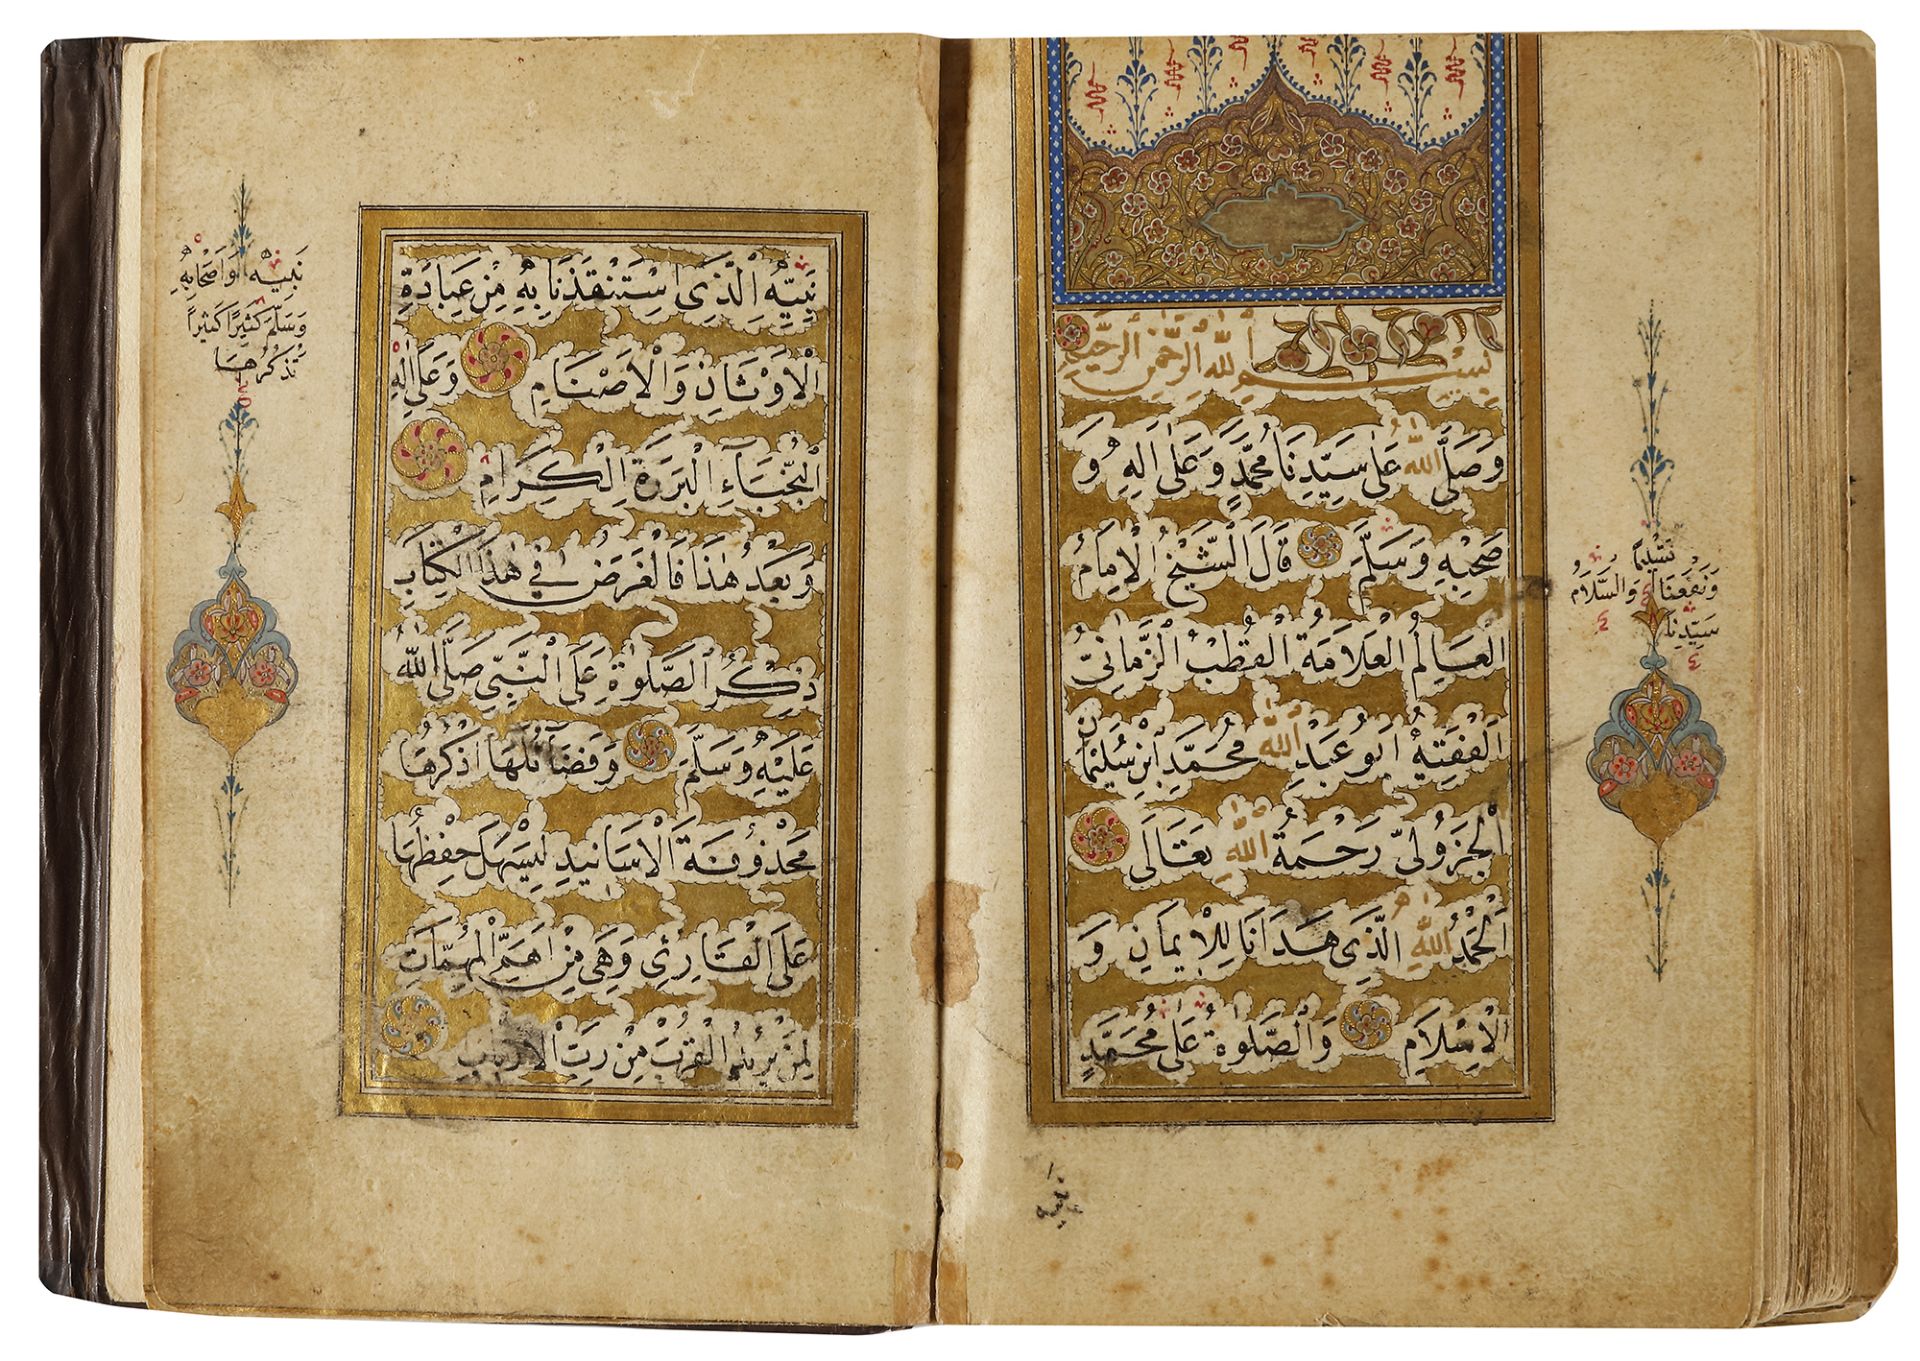 بِسْمِ اللهِ الرَّحْمٰنِ الرَّحِيمِ
وَصَلَّى اللهُ عَلٰى سَيِّدِنَا مُحَمَّدٍ وَعَلٰى اٰلِهِ وَ
صَحْبِهِ وَسَلَّمَ قَالَ الشَّيْخُ الْاِمَامُ
الْعَالِمُ الْعَلَامَةُ الْقُطْبُ الزَّمَانِيُّ
الْفَقِيْهُ اَبُو عَبْدِ اللهِ مُحَمَّدِ ابْنِ سُلَيْمَانَ
الْجَزُولِيّ رَحْمَةُ اللهِ تَعَالَى
اَلْحَمْدُ اللهِ الَّذِي هَدَانَا لِلْاِيمَانِ وَ
الْاِسْلَامِ وَالصَّلٰوةُ عَلٰى مُحَمَّدٍ
نَبِيِّهِ
وَنَفَعَنَا وَالسَّلَامُ
سَيِّدِنَا
نَبِيِّهِ الَّذِي اسْتَنْقَذَنَا بِهِ مِنْ عِبَادَةِ
الْاَوْثَانِ وَالْاَصْنَامِ وَعَلٰى اٰلِهِ
النُّجَبَآءِ الْبَرَرَةِ الْكِرَامِ
وَبَعْدُ هٰذَا فَالْغَرَضُ فِي هٰذَا الْكِتَابِ
ذِكْرُ الصَّلٰوةِ عَلَى النَّبِيِّ صَلَّى اللهُ
عَلَيْهِ وَسَلَّمَ وَفَضَآئِلُهَا اَذْكُرُهَا
مَحْذُوفَةَ الْاَسَانِيدِ لِيَسْهَلَ حِفْظُهَا
عَلَى الْقَارِئِ وَهِيَ مِنْ اَهَمِّ الْمُهِمَّاتِ
لِمَنْ يُرِيدُ الْقُرْبَ مِنْ رَبِّ الْاَرْبَابِ
نَبِيِّهِ وَاَصْحَابِهِ
وَسَلَّمَ كَثِيْرًا كَثِيْرًا
نَذْكُرُهَا